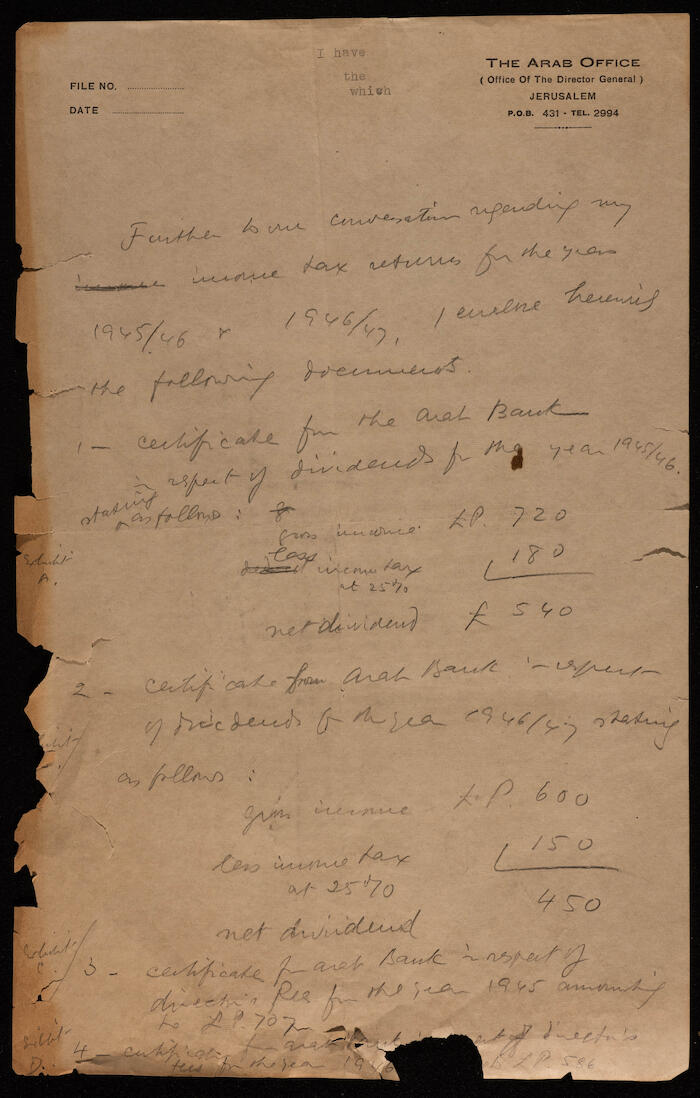 I have
the
which
FILE NO. ....................
DATE ....................
THE ARAB OFFICE
( Office Of The Director General )
JERUSALEM
P.O.B. 431 - TEL. 2994
Further to our conversation regarding my
income tax returns for the years
1945/46 & 1946/47, I enclose herewith
the following documents.
1 - certificate from the Arab Bank
in respect of dividends for the year 1945/46.
stating as follows :
gross income £P. 720
Exhibit A.
less income tax at 25% 180
net dividend £ 540
2 - certificate from Arab Bank in respect
of dividends for the year 1946/47 stating
as follows :
gross income £P. 600
less income tax at 25% 150
450
net dividend
Exhibit C.
3 - certificate from Arab Bank in respect of
director's fees for the year 1945 amounting
to £P. 707
Exhibit D.
4 - certificate from Arab Bank of director's
fees for the year 1946 £P. 586